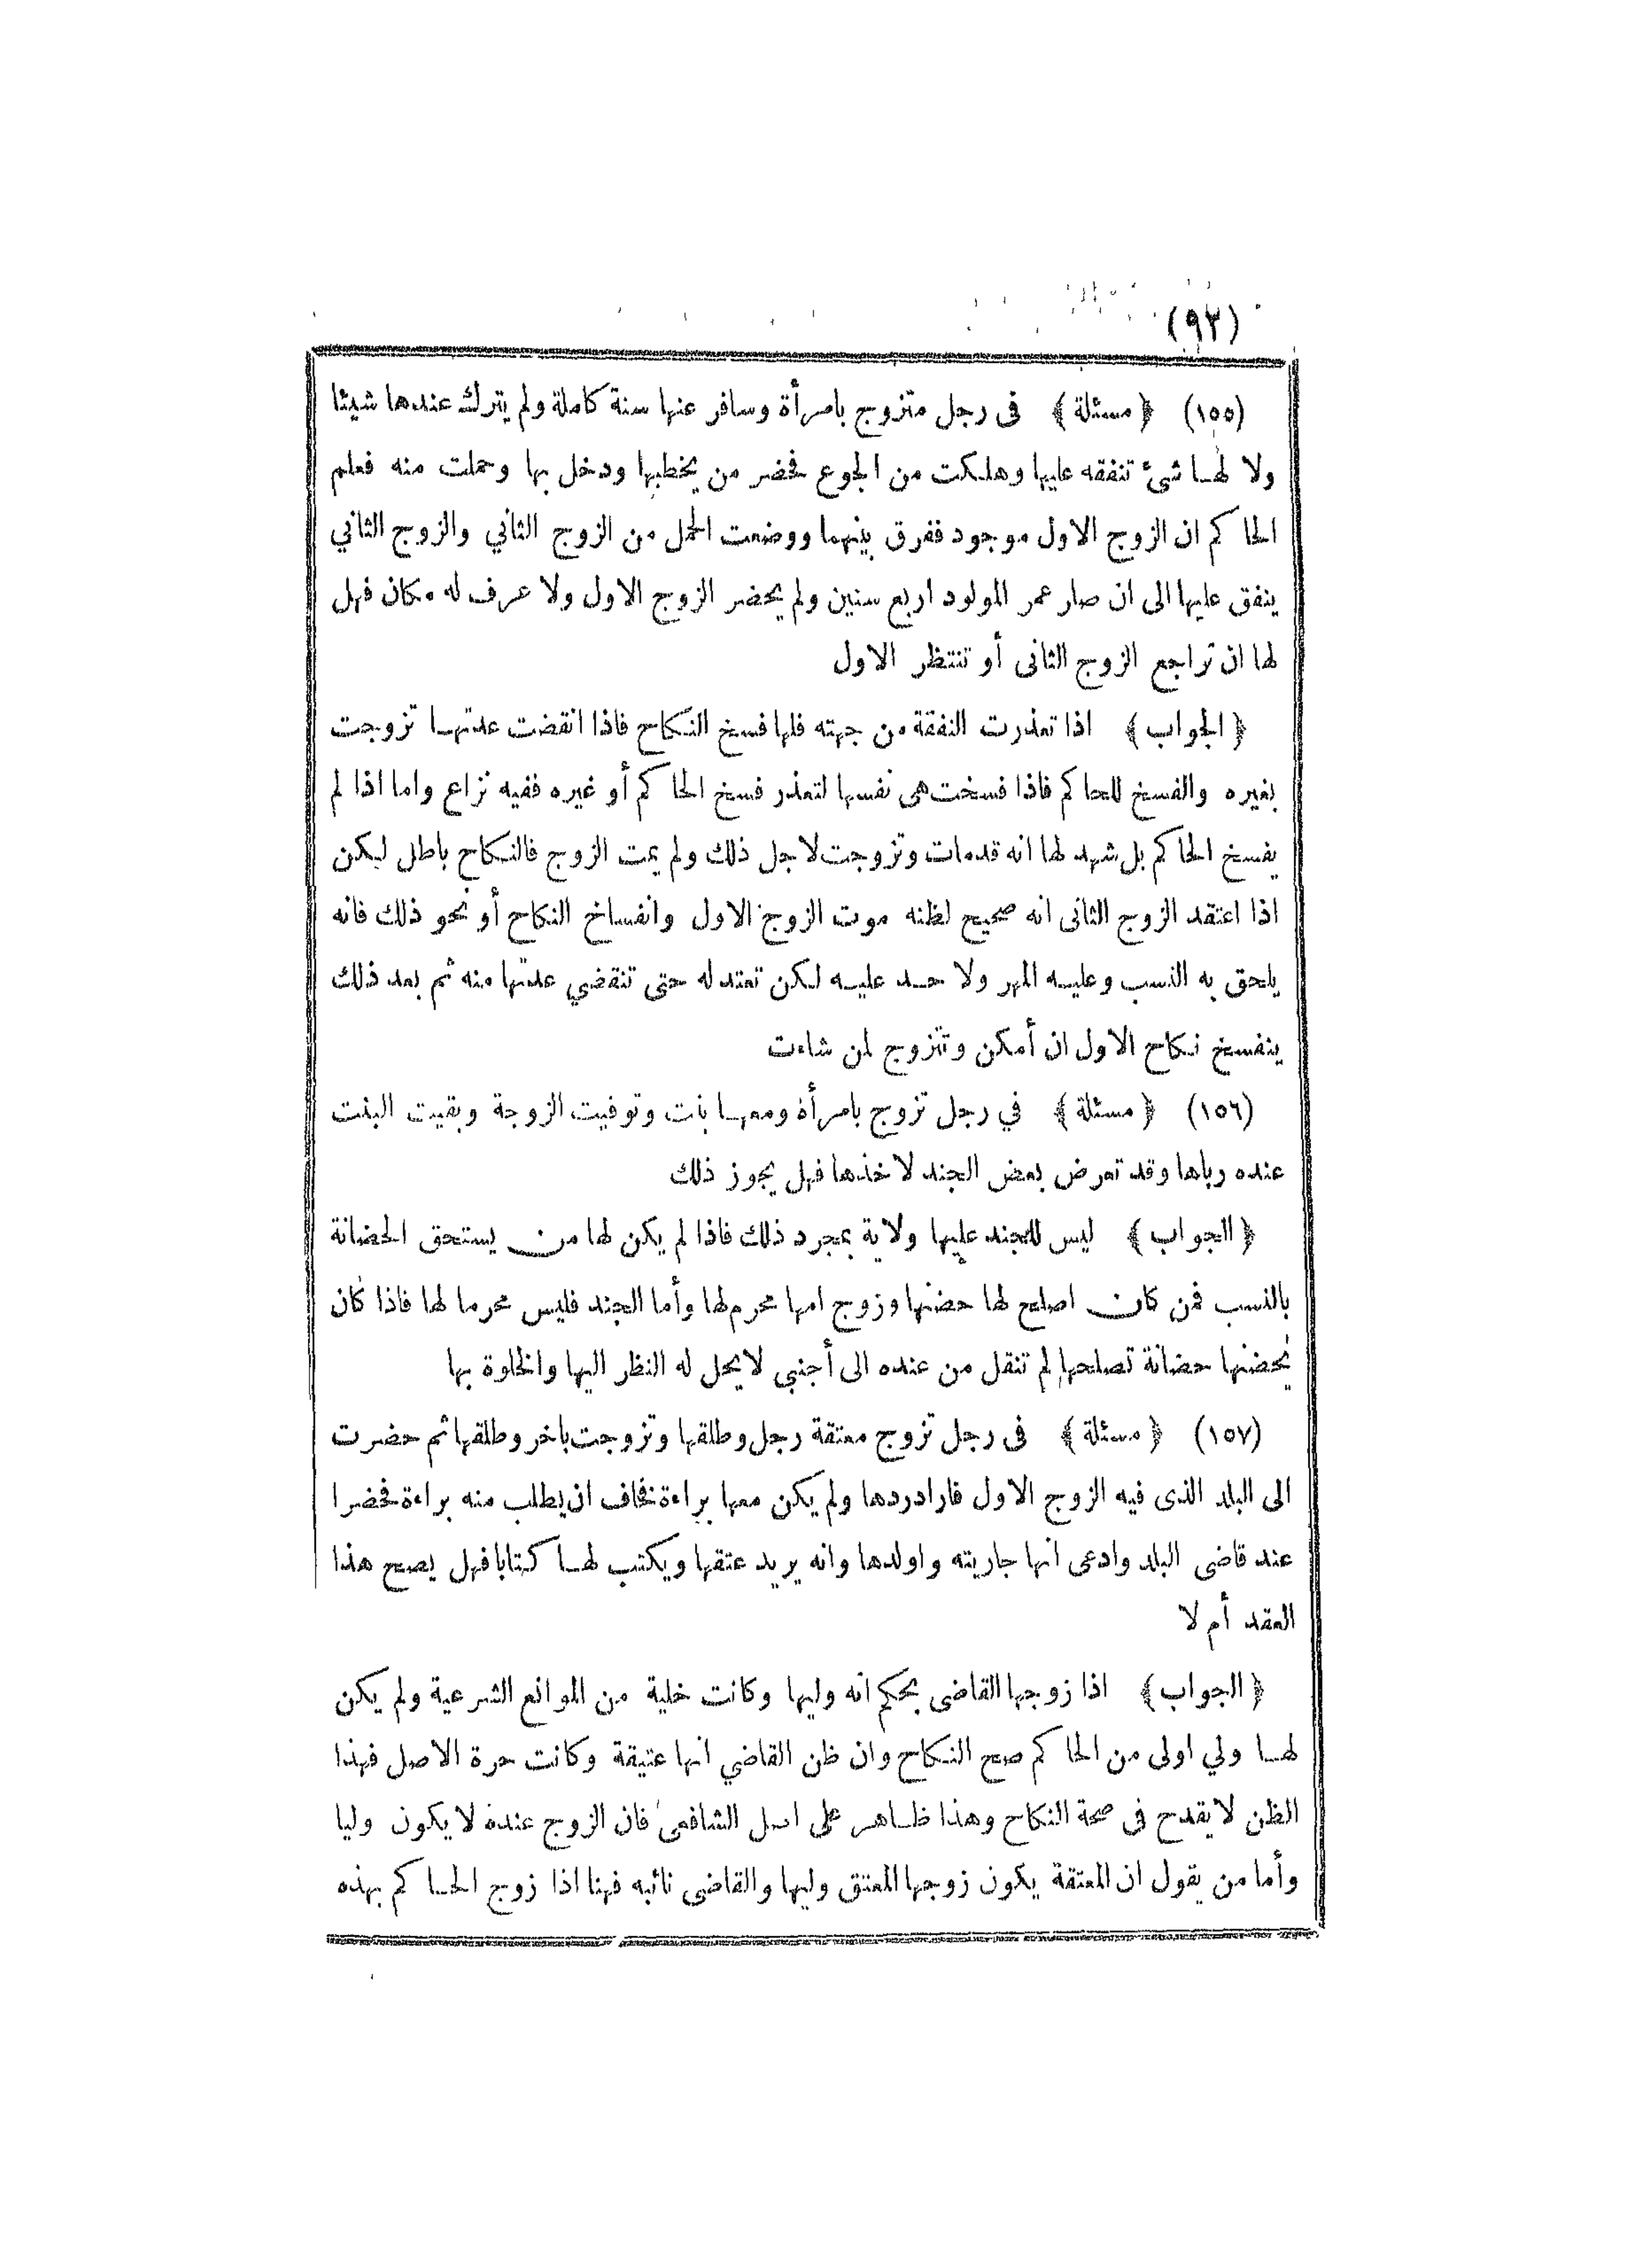 (٩٢)
(١٥٥) ﴿ مسئلة ﴾ فى رجل متزوج بامرأة وسافر عنها سنة كاملة ولم يترك عندها شيئا
ولا لهـا شئ تنفقه عليها وهلكت من الجوع فحضر من يخطبها ودخل بها وحملت منه فعلم
الحاكم ان الزوج الاول موجود ففرق بينهما ووضعت الحمل من الزوج الثاني والزوج الثاني
ينفق عليها الى ان صار عمر المولود اربع سنين ولم يحضر الزوج الاول ولا عرف له مكان فهل
لها ان تراجع الزوج الثانى أو تنتظر الاول
﴿ الجواب ﴾ اذا تعذرت النفقة من جهته فلها فسخ النكاح فاذا انقضت عدتهـا تزوجت
بغيره والفسخ للحاكم فاذا فسخت هى نفسها لتعذر فسخ الحاكم أو غيره ففيه نزاع واما اذا لم
يفسخ الحاكم بل شهد لها انه قدمات وتزوجت لاجل ذلك ولم يمت الزوج فالنكاح باطل لكن
اذا اعتقد الزوج الثانى انه صحيح لظنه موت الزوج الاول وانفساخ النكاح أو نحو ذلك فانه
يلحق به النسب وعليـه المهر ولا حـد عليـه لكن تعتد له حتى تنقضي عدتها منه ثم بعد ذلك
ينفسخ نكاح الاول ان أمكن وتتزوج لمن شاءت
(١٥٦) ﴿ مسئلة ﴾ في رجل تزوج بامرأة ومعهـا بنت وتوفيت الزوجة وبقيت البنت
عنده رباها وقد تعرض بعض الجند لاخذها فهل يجوز ذلك
﴿ الجواب ﴾ ليس للجند عليها ولاية بمجرد ذلك فاذا لم يكن لها من يستحق الحضانة
بالنسب فمن كان اصلح لها حضنها وزوج امها محرم لها وأما الجند فليس محرما لها فاذا كان
يحضنها حضانة تصلحها لم تنقل من عنده الى أجنبي لا يحل له النظر اليها والخلوة بها
(١٥٧) ﴿ مسئلة ﴾ فى رجل تزوج معتقة رجل وطلقها وتزوجت باخر وطلقها ثم حضرت
الى البلد الذى فيه الزوج الاول فاراد ردها ولم يكن معها براءة فخاف ان يطلب منه براءة فحضرا
عند قاضى البلد وادعى انها جاريته واولدها وانه يريد عتقها ويكتب لهـا كتابا فهل يصح هذا
العقد أم لا
﴿ الجواب ﴾ اذا زوجها القاضى بحكم انه وليها وكانت خلية من الموانع الشرعية ولم يكن
لهـا ولي اولى من الحاكم صح النكاح وان ظن القاضي انها عتيقة وكانت حرة الاصل فهذا
الظن لا يقدح فى صحة النكاح وهذا ظـاهر على اصل الشافعى فان الزوج عنده لا يكون وليا
وأما من يقول ان المعتقة يكون زوجها المعتق وليها والقاضى نائبه فهنا اذا زوج الحـاكم بهذه